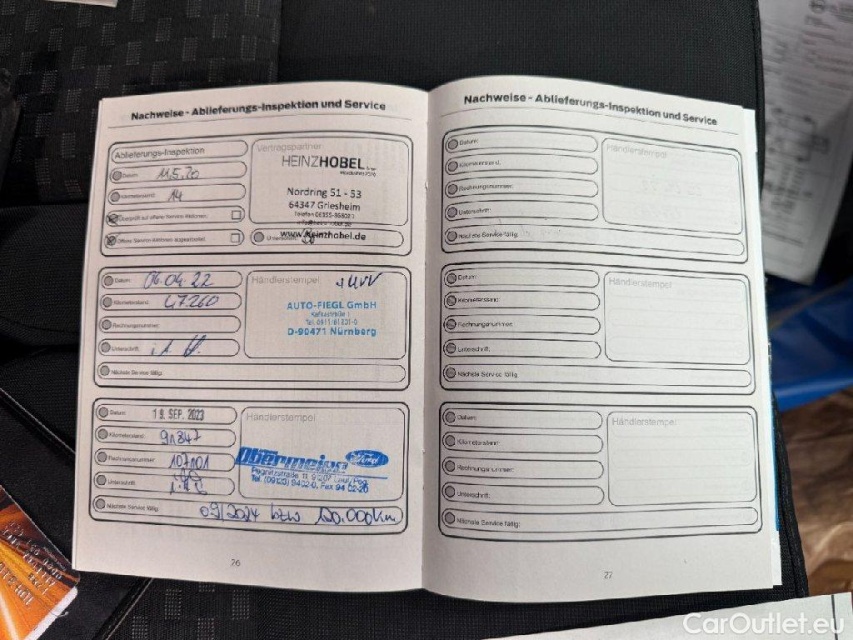 Nachweise - Ablieferungs-Inspektion und Service
Ablieferungs-Inspektion
Datum: 11.5.20
Kilometerstand: 14
Überprüft auf offene Service-Aktionen:
Offene Service-Aktionen abgearbeitet:
Vertragspartner
HEINZHOBEL
Nordring 51 - 53
64347 Griesheim
www.heinzhobel.de
Unterschrift:
Datum: 06.04.22
Kilometerstand: 47260
Rechnungsnummer:
Unterschrift:
Nächste Service fällig:
Händlerstempel
AUTO-FIEGL GmbH
D-90471 Nürnberg
Datum: 19. SEP. 2023
Kilometerstand: 91847
Rechnungsnummer: 107101
Unterschrift:
Nächste Service fällig: 09/2024 bzw 120.000km
Händlerstempel
Obermeier Ford
Pegnitzstraße 11, 91207 Lauf/Peg.
Tel. (09123) 9402-0, Fax 94 02-26
26
Nachweise - Ablieferungs-Inspektion und Service
Datum:
Kilometerstand:
Rechnungsnummer:
Unterschrift:
Nächste Service fällig:
Händlerstempel
Datum:
Kilometerstand:
Rechnungsnummer:
Unterschrift:
Nächste Service fällig:
Händlerstempel
Datum:
Kilometerstand:
Rechnungsnummer:
Unterschrift:
Nächste Service fällig:
Händlerstempel
27
CarOutlet.eu